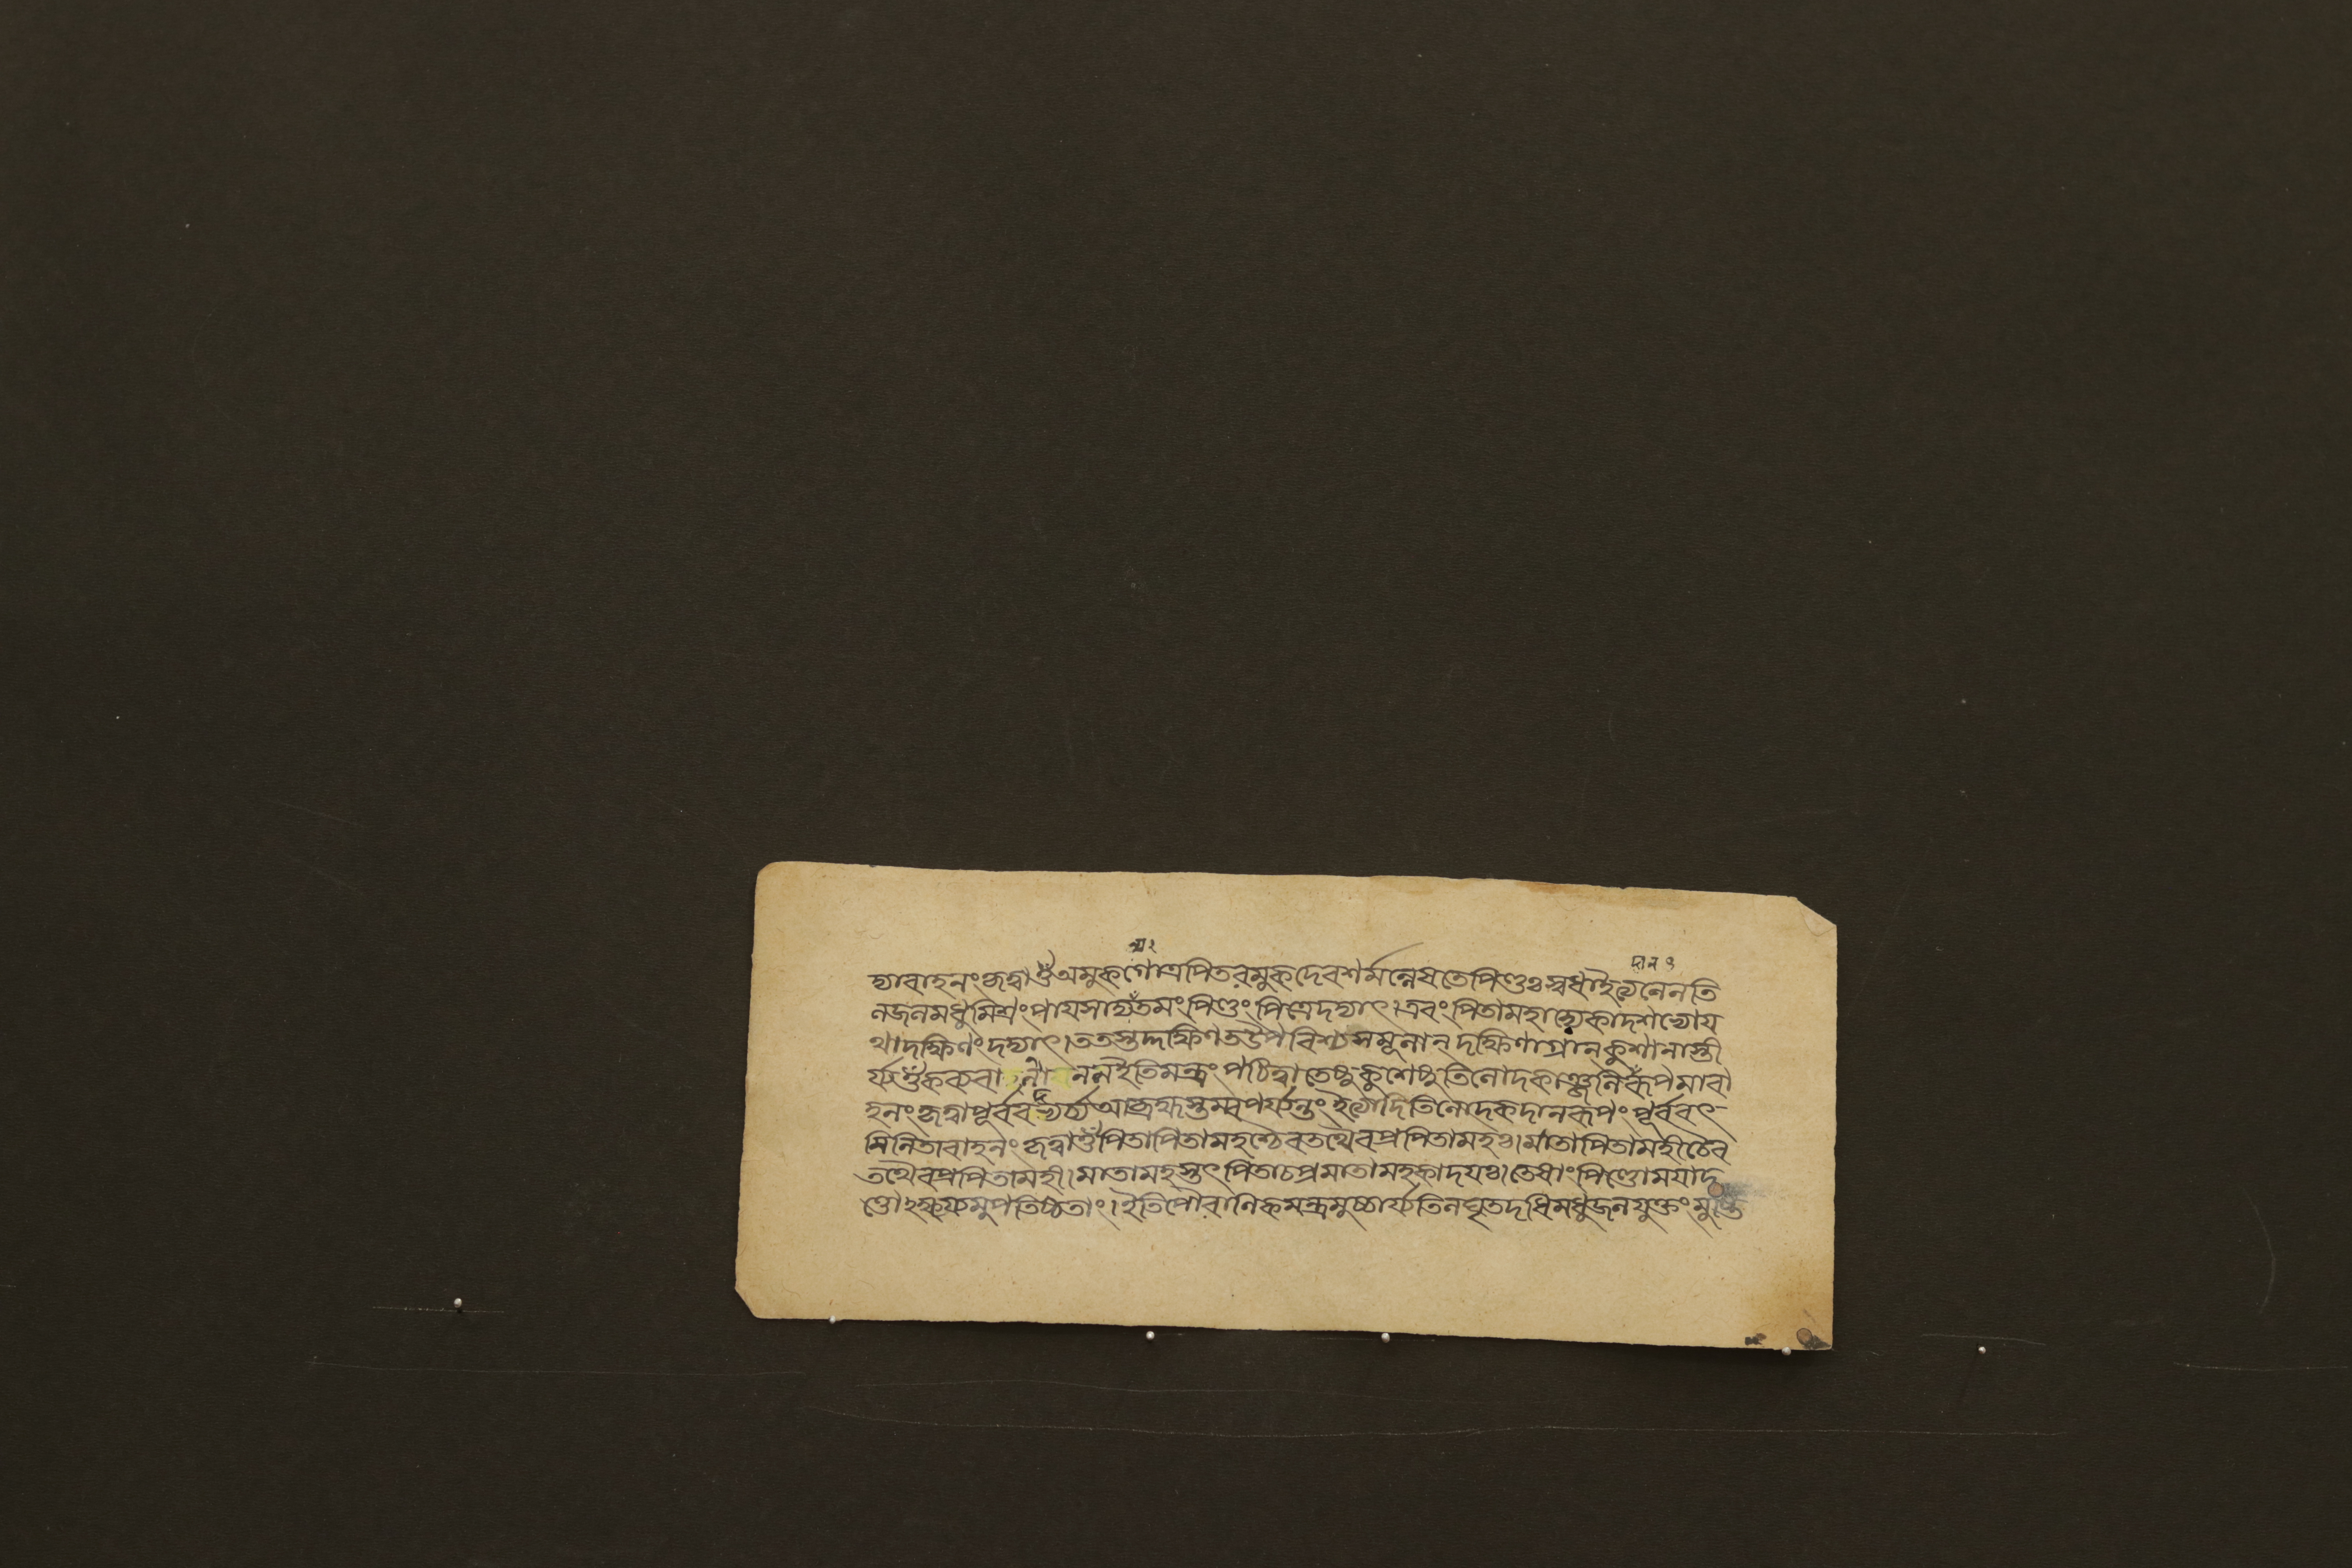 দ্যাবাহনং কৃত্বা ওঁ অমুকগোত্র পিতরমুকদেবশর্মন্নেষ তে পিণ্ডঃ স্বধা ইত্যনেন তি
লজলমধুমিশ্রং পায়সাদ্যুতমং পিণ্ডং পিত্রে দদ্যাৎ। এবং পিতামহাদ্যেকাদশভ্যো য
থা দক্ষিণং দদ্যাৎ। ততস্তদ্দক্ষিণত উপবিশ্য সমূলান্ দক্ষিণাগ্রান্ কুশানাস্তী
র্য্য ওঁ ইতি মন্ত্রং পঠিত্বা তেষু কুশেষু তিলোদকাঞ্জলিরূপমাবা
হনং কৃত্বা পূর্ব্বব আব্রহ্মস্তম্বপর্য্যন্তং ইত্যাদি তিলোদকদানরূপং পূর্ব্ববৎ
মিলিতাবাহনং কৃত্বা ওঁ পিতা পিতামহশ্চৈব তথৈব প্রপিতামহঃ। মাতা পিতামহী চৈব
তথৈব প্রপিতামহী। মাতামহস্তৎপিতা চ প্রমাতামহকাদয়ঃ। তেষাং পিণ্ডো ময়া দ
ত্তোঽক্ষয্যমুপতিষ্ঠতাং। ইতি পৌরাণিকমন্ত্রমুচ্চার্য্য তিলঘৃতদধিমধুজলযুক্তং